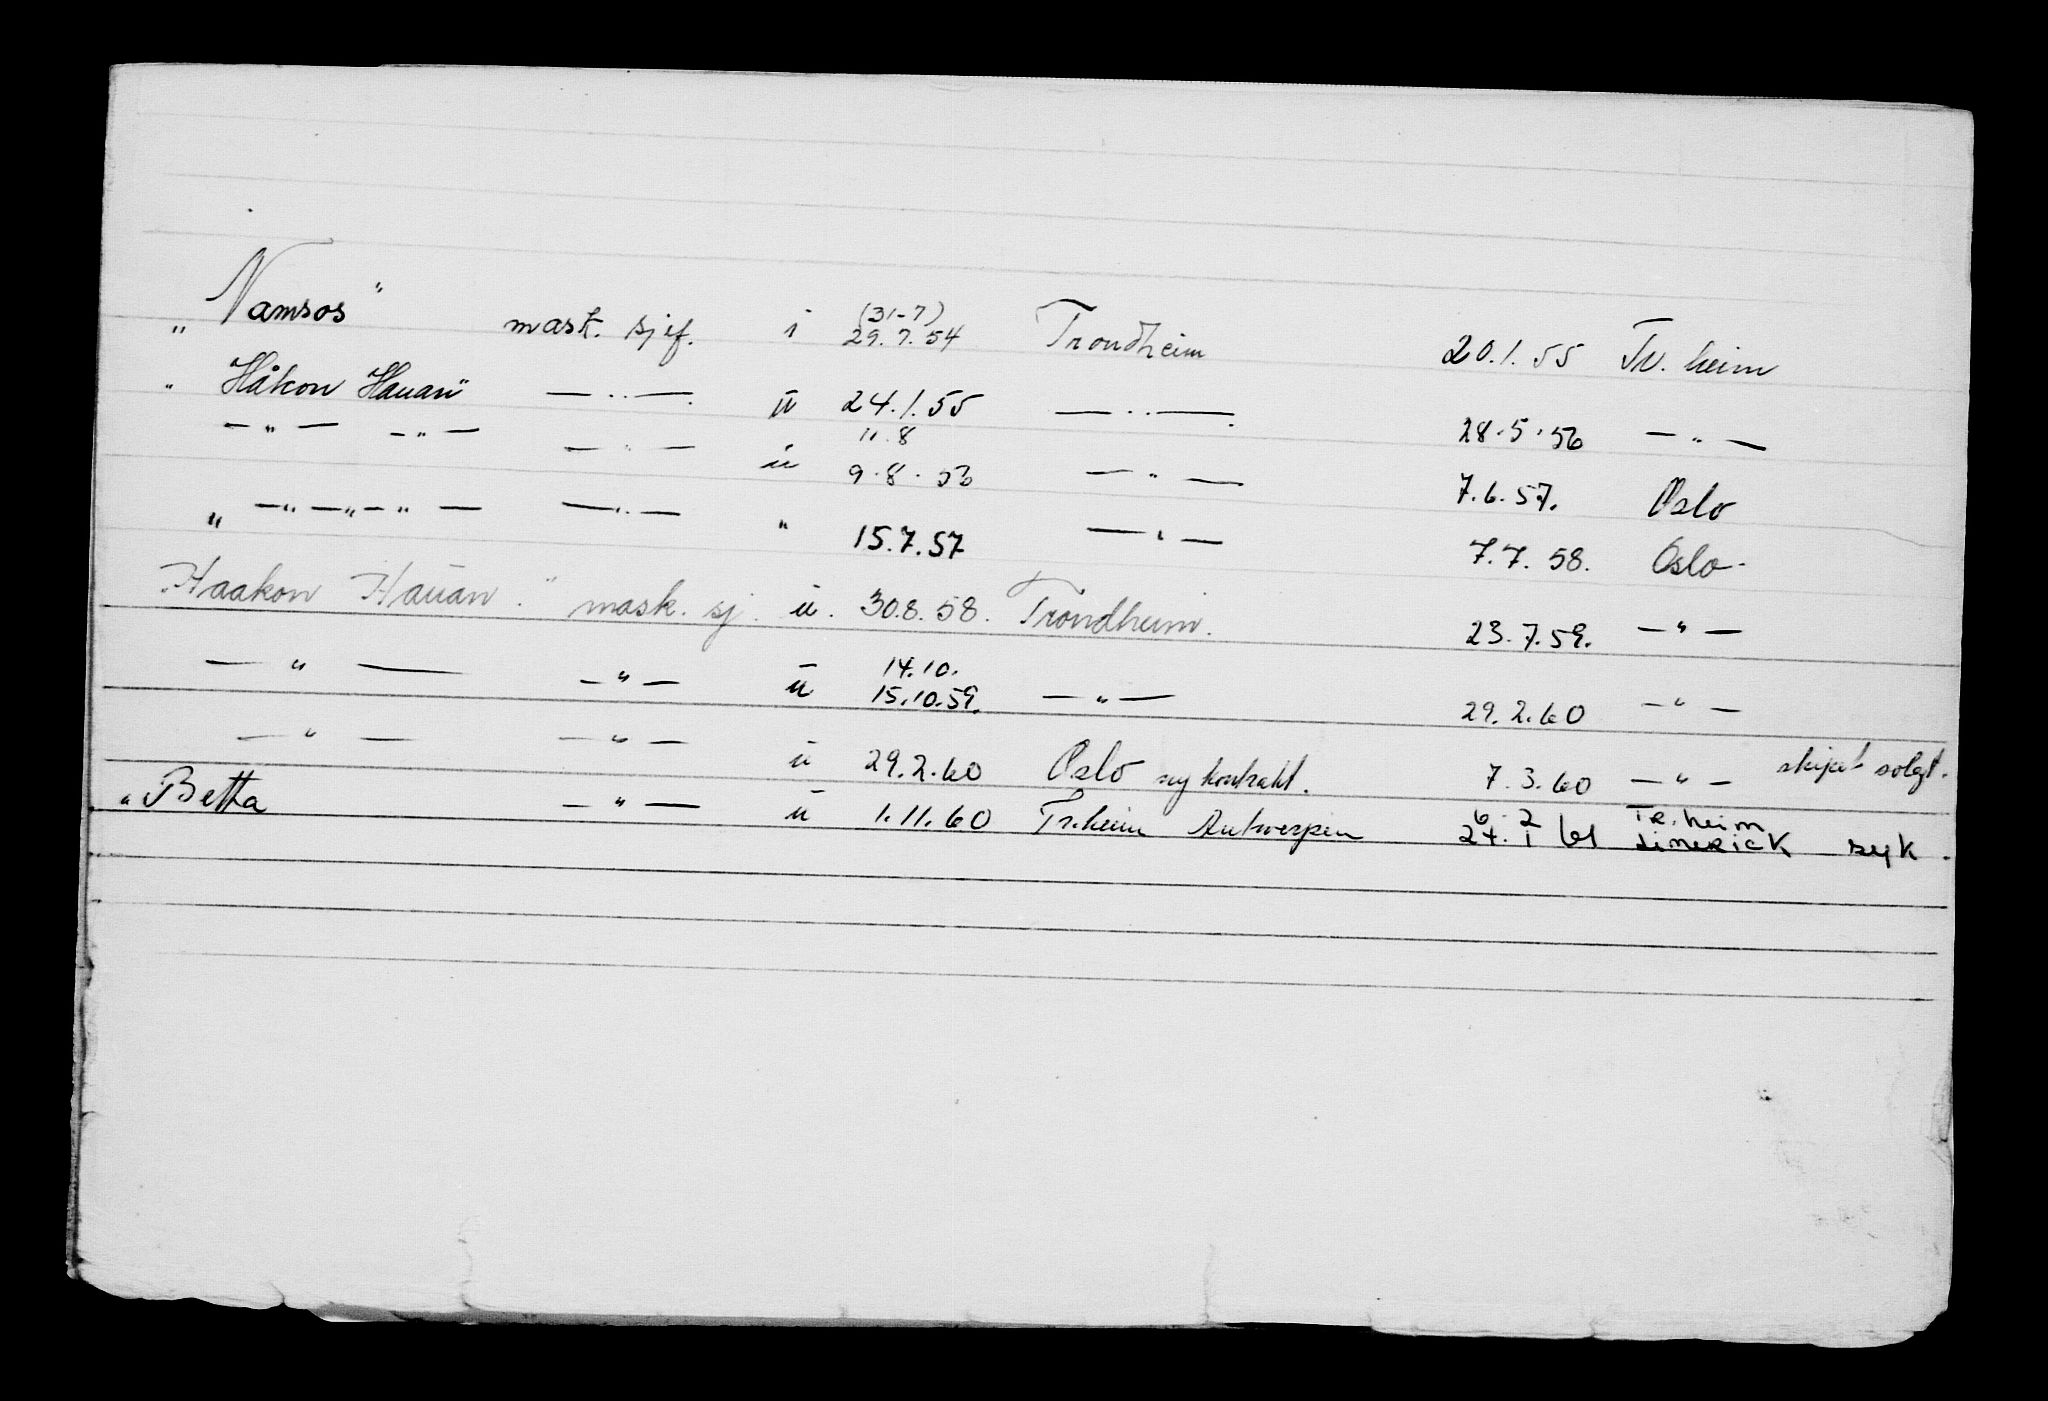 „ Namsos" mask. sjef. i (31-7) 29.7.54 Trondheim 20.1.55 Tr. heim
„ Håkon Hauan" — „ — ü 24.1.55 — „ — 28.5.56 — „ —
— „ — — „ — — „ — ü 11.8 9.8.53 — „ — 7.6.57. Oslo
„ — „ — „ — „ — — „ — " 15.7.57 — „ — 7.7.58. Oslo.
Haakon Hauan." mask. sj. ü. 30.8.58. Trondheim. 23.7.59. — „ —
— „ — — „ — ü 14.10. 15.10.59. — „ — 29.2.60 — „ —
— „ — — „ — ü 29.2.60 Oslo ny kontrakt. 7.3.60 — „ — skipet solgt.
„ Betta — „ — ü 1.11.60 Tr.heim Antwerpen 6.2 24.1 61 Tr.heim Limerick syk.